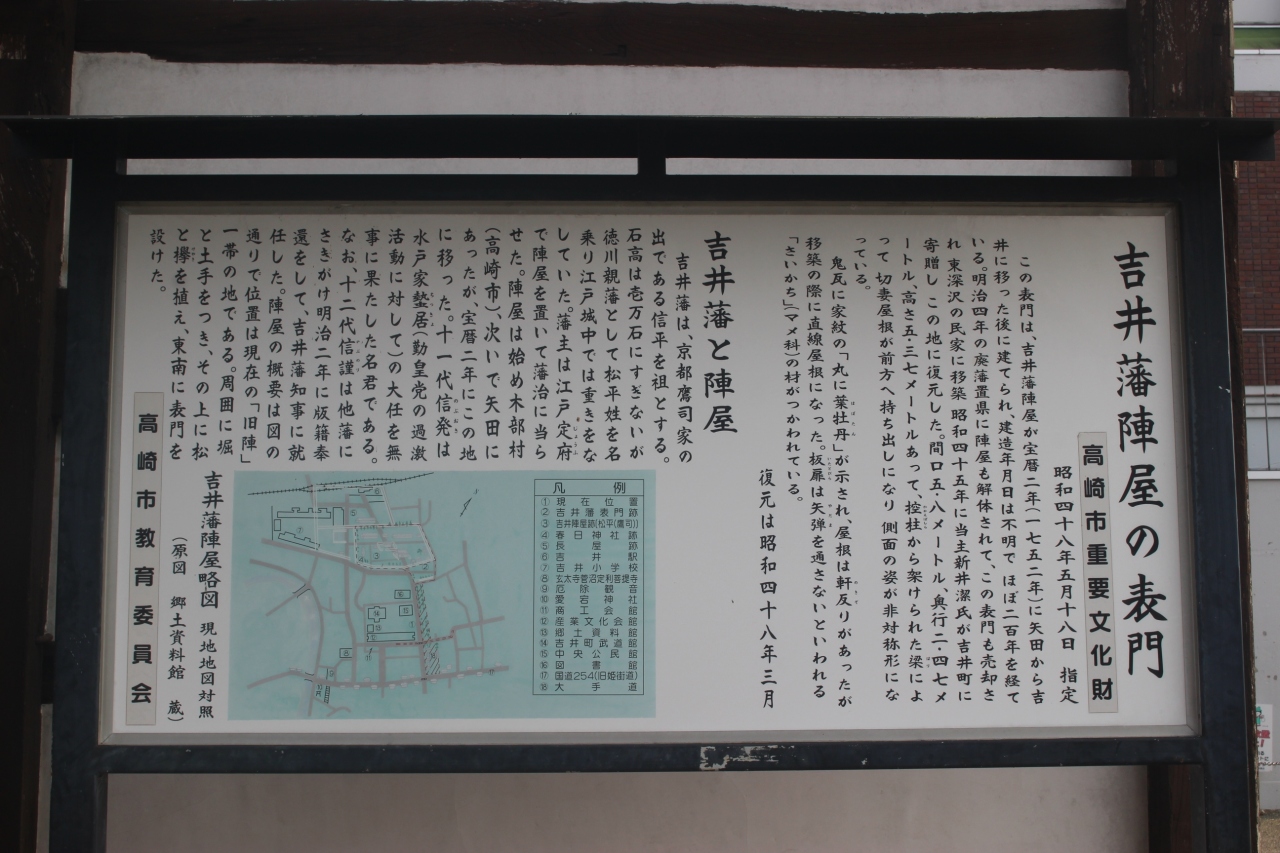 吉井藩陣屋の表門
高崎市重要文化財
昭和四十八年五月十八日　指定
この表門は、吉井藩陣屋が宝暦二年(一七五二年)に矢田から吉
井に移った後に建てられ、建造年月日は不明で ほぼ二百年を経て
いる。明治四年の廃藩置県に陣屋も解体されて、この表門も売却さ
れ 東深沢の民家に移築 昭和四十五年に当主新井潔氏が吉井町に
寄贈し この地に復元した。間口五・八メートル、奥行二・四七メ
ートル、高さ五・三七メートルあって、控柱から架けられた梁によ
って 切妻屋根が前方へ持ち出しになり 側面の姿が非対称形にな
っている。
鬼瓦に家紋の「丸に葉牡丹」が示され、屋根は軒反りがあったが
移築の際に直線屋根になった。板扉は矢弾を通さないといわれる
「さいかち」(マメ科)の材がつかわれている。
復元は昭和四十八年三月
吉井藩と陣屋
吉井藩は、京都鷹司家の
出である信平を祖とする。
石高は壱万石にすぎないが
徳川親藩として松平姓を名
乗り江戸城中では重きをな
していた。藩主は江戸定府
で陣屋を置いて藩治に当ら
せた。陣屋は始め木部村
(高崎市)、次いで矢田に
あったが、宝暦二年にこの地
に移った。十一代信発は
水戸家蟄居(勤皇党の過激
活動に対して)の大任を無
事に果たした名君である。
なお、十二代信謹は他藩に
さきがけ明治二年に版籍奉
還をして、吉井藩知事に就
任した。陣屋の概要は図の
通りで位置は現在の「旧陣」
一帯の地である。周囲に堀
と土手をつき、その上に松
と欅を植え、東南に表門を
設けた。
凡例
①現在位置
②吉井藩表門跡
③吉井陣屋跡(松平(鷹司))
④春日神社跡
⑤長屋跡
⑥吉井駅
⑦吉井小学校
⑧玄太寺菅沼定利菩提寺
⑨厄除観音
⑩愛宕神社
⑪商工会館
⑫産業文化会館
⑬郷土資料館
⑭吉井町武道館
⑮中央公民館
⑯図書館
⑰国道254(旧姫街道)
⑱大手道
吉井藩陣屋略図 現地地図対照
(原図　郷土資料館　蔵)
高崎市教育委員会